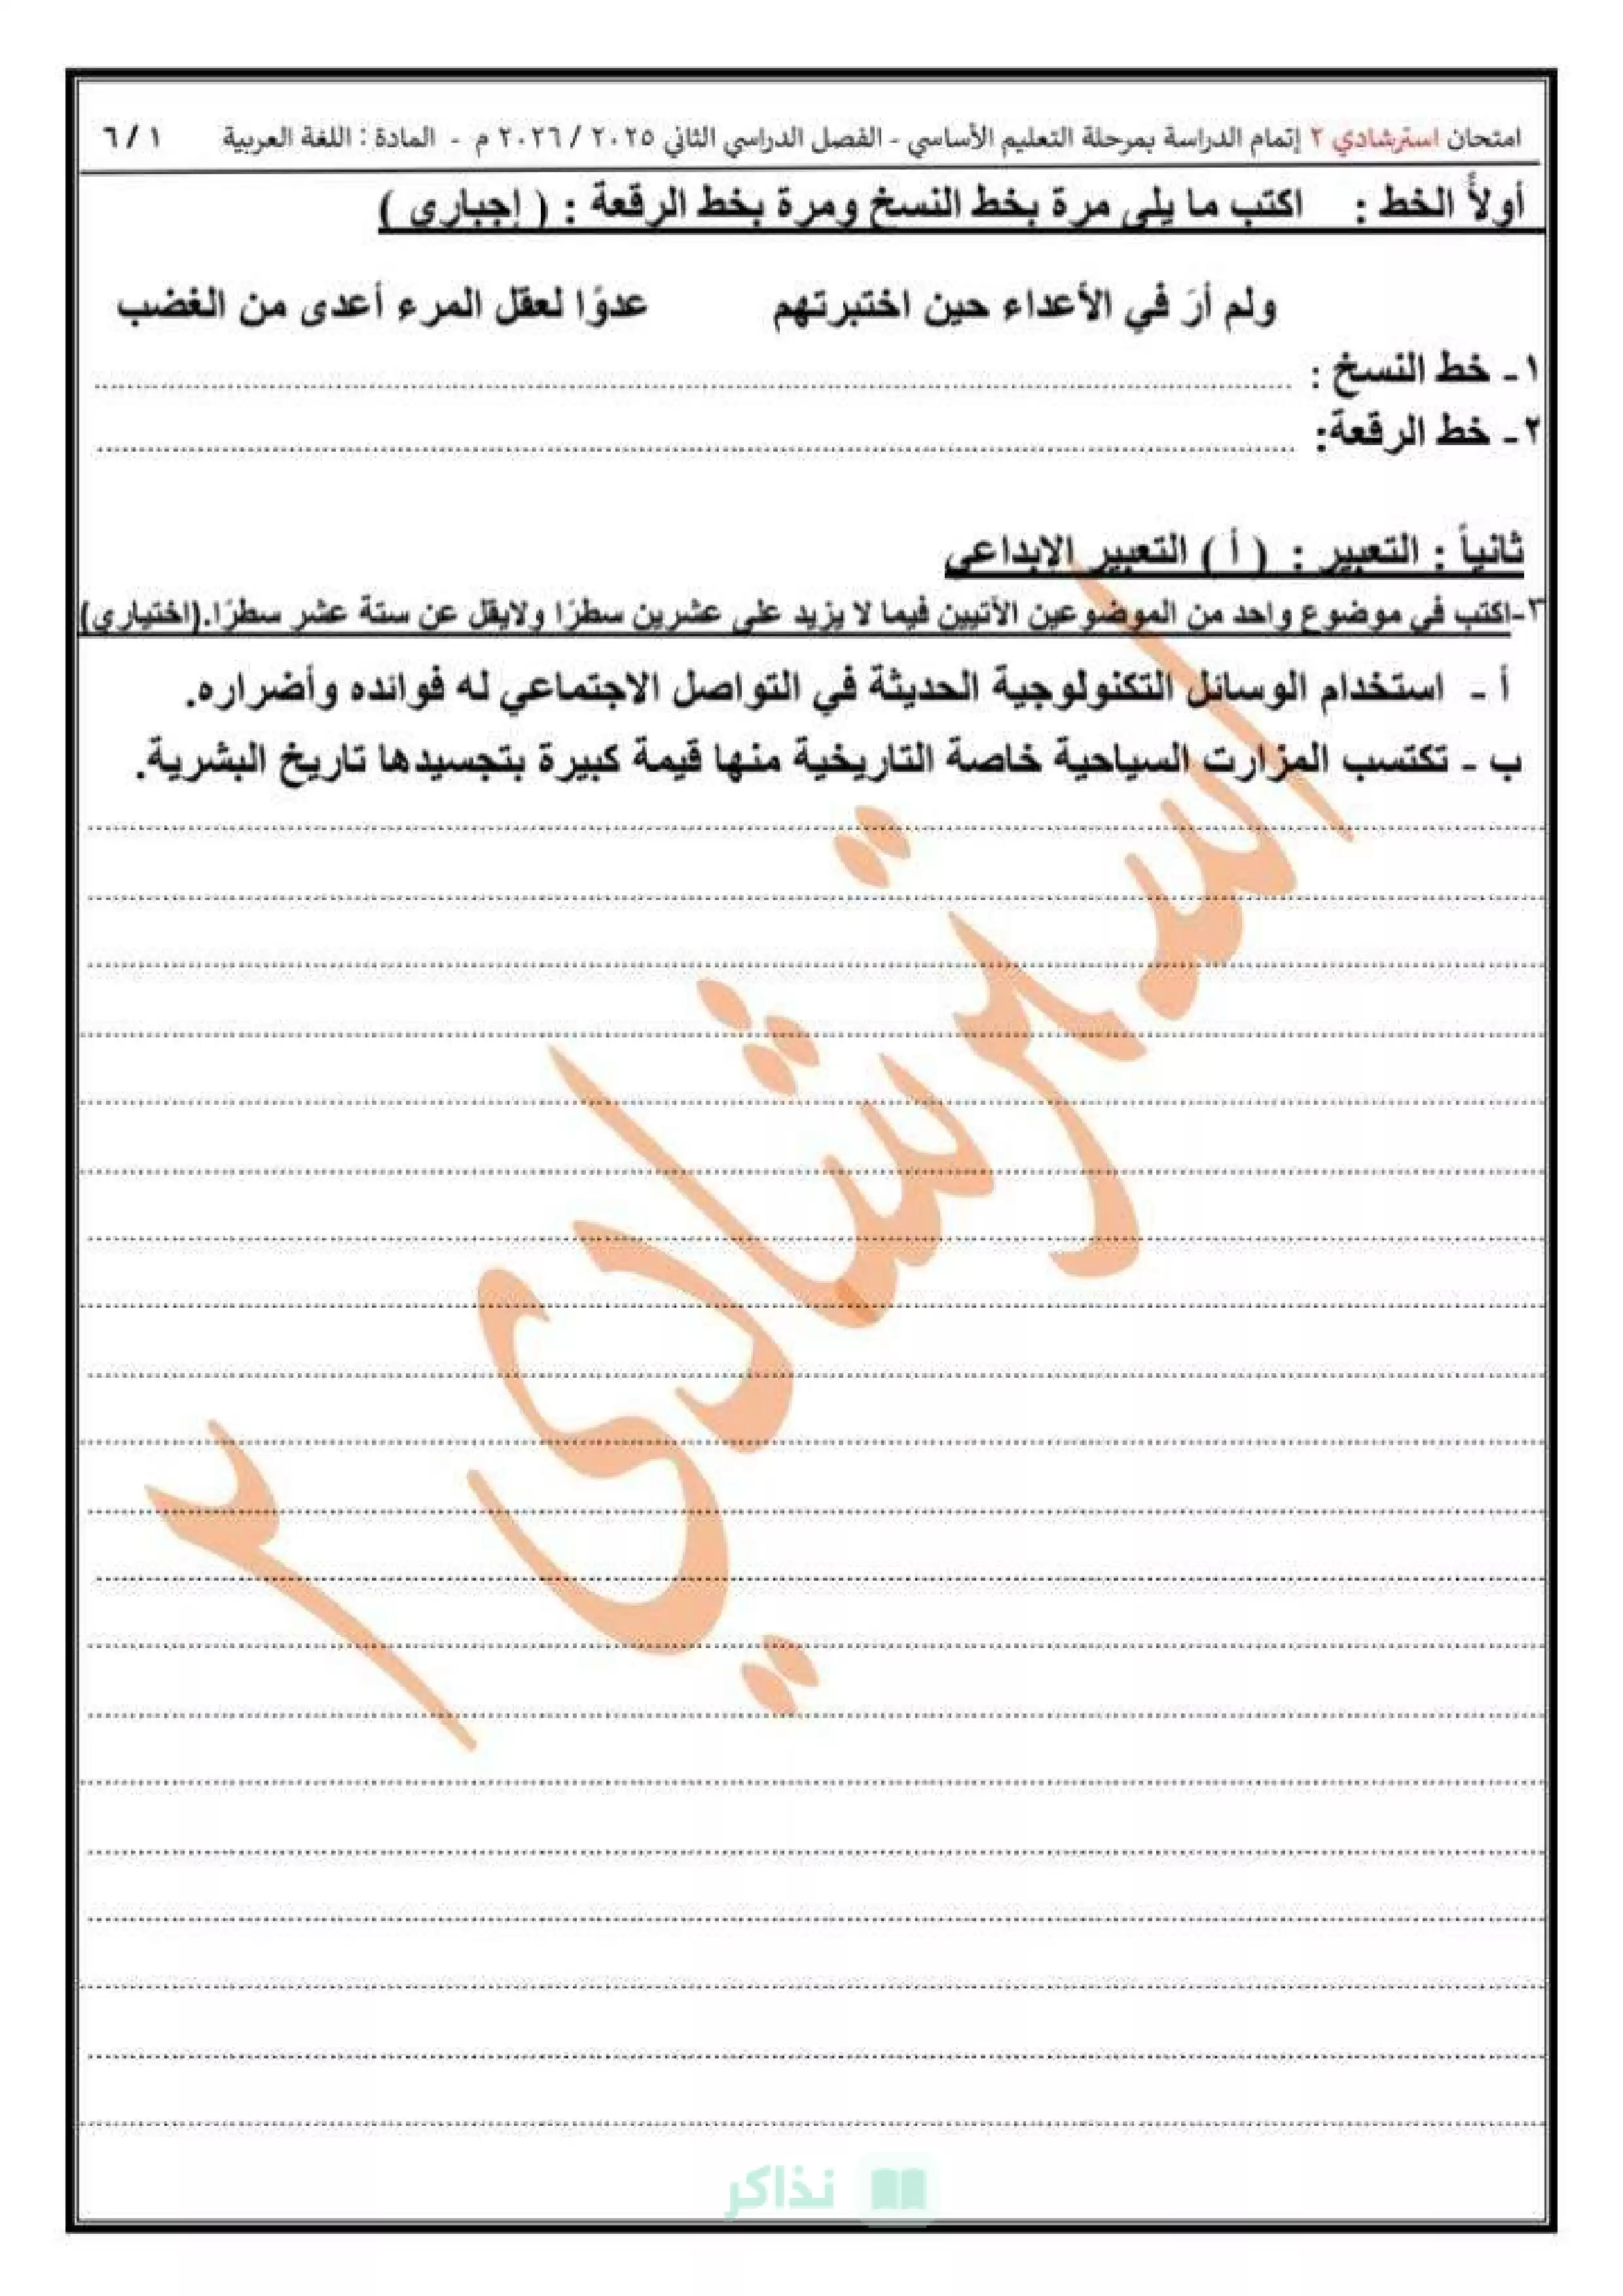 امتحان استرشادي ٢ إتمام الدراسة بمرحلة التعليم الأساسي - الفصل الدراسي الثاني ٢٠٢٥ / ٢٠٢٦ م - المادة : اللغة العربية ١ / ٦
أولاً الخط : اكتب ما يلي مرة بخط النسخ ومرة بخط الرقعة : ( إجباري )
ولم أرَ في الأعداء حين اختبرتهم عدوًا لعقل المرء أعدى من الغضب
١- خط النسخ : ................
٢- خط الرقعة: ................
ثانياً : التعبير : ( أ ) التعبير الإبداعي
٣-اكتب في موضوع واحد من الموضوعين الآتيين فيما لا يزيد على عشرين سطرًا ولايقل عن ستة عشر سطرًا.(اختياري)
أ - استخدام الوسائل التكنولوجية الحديثة في التواصل الاجتماعي له فوائده وأضراره.
ب - تكتسب المزارت السياحية خاصة التاريخية منها قيمة كبيرة بتجسيدها تاريخ البشرية.
استرشادي ٢
نذاكر